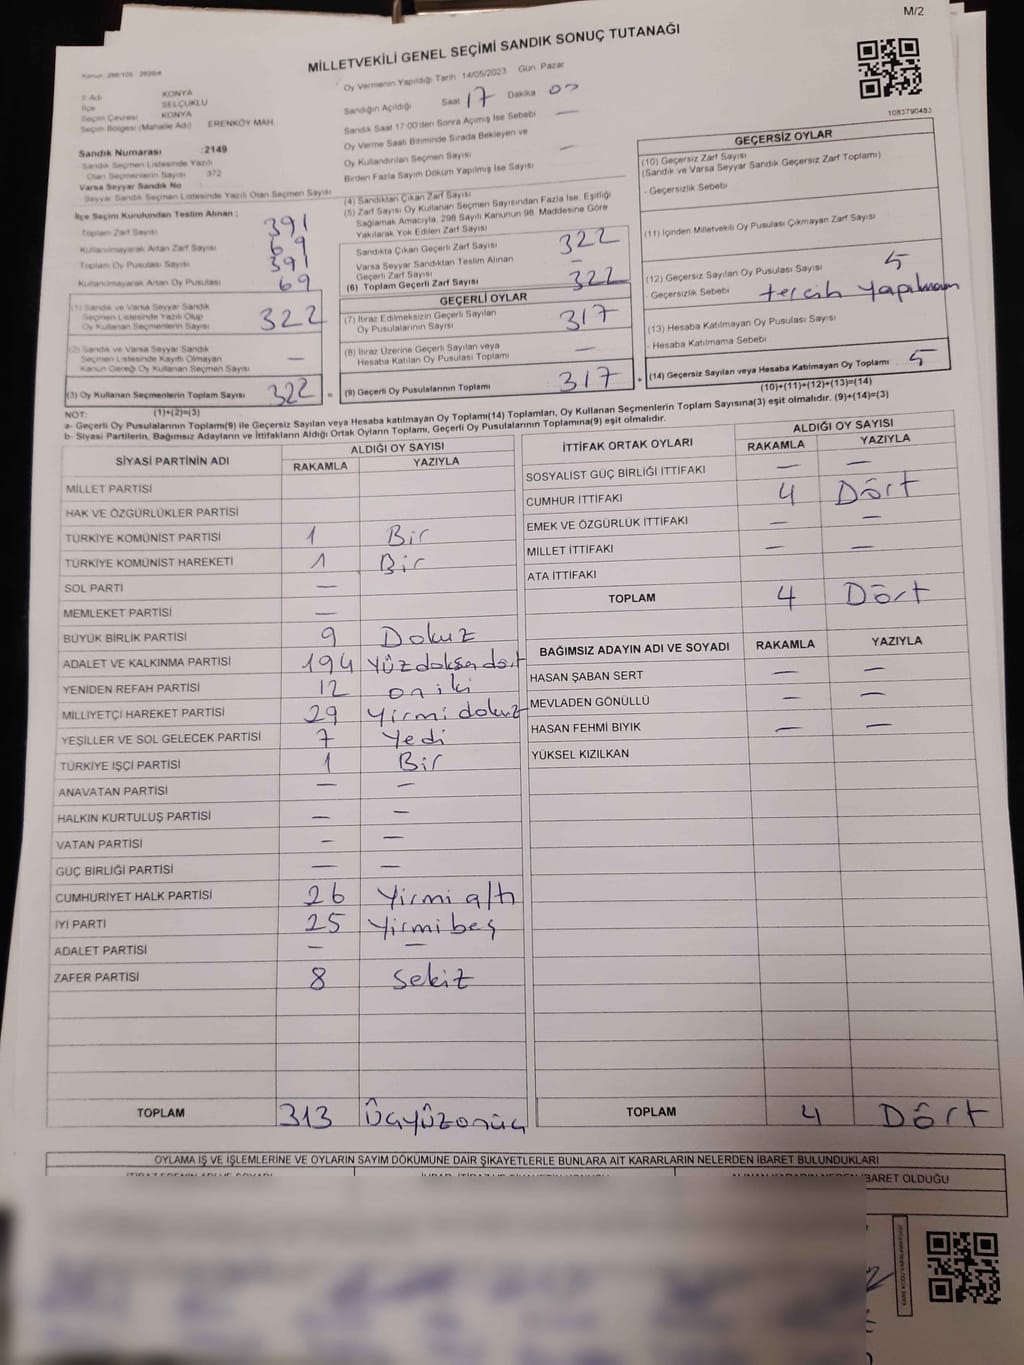 M/2
MİLLETVEKİLİ GENEL SEÇİMİ SANDIK SONUÇ TUTANAĞI
İl Adı KONYA
İlçe SELÇUKLU
Seçim Çevresi KONYA
Seçim Bölgesi (Mahalle Adı) ERENKÖY MAH.
Sandık Numarası :2149
Sandık Seçmen Listesinde Yazılı
Olan Seçmenlerin Sayısı 372
Varsa Seyyar Sandık No
Seyyar Sandık Seçmen Listesinde Yazılı Olan Seçmen Sayısı
İlçe Seçim Kurulundan Teslim Alınan ;
Toplam Zarf Sayısı 391
Kullanılmayarak Artan Zarf Sayısı 69
Toplam Oy Pusulası Sayısı 391
Kullanılmayarak Artan Oy Pusulası 69
(1) Sandık ve Varsa Seyyar Sandık
Seçmen Listesinde Yazılı Olup
Oy Kullanan Seçmenlerin Sayısı 322
(2) Sandık ve Varsa Seyyar Sandık
Seçmen Listesinde Kayıtlı Olmayan
Kanun Gereği Oy Kullanan Seçmen Sayısı —
(3) Oy Kullanan Seçmenlerin Toplam Sayısı 322 =
Oy Vermenin Yapıldığı Tarih 14/05/2023 Gün Pazar
Sandığın Açıldığı Saat 17 Dakika 00
Sandık Saat 17:00'den Sonra Açımış İse Sebebi —
Oy Verme Saati Bitiminde Sırada Bekleyen ve
Oy Kullandırılan Seçmen Sayısı —
Birden Fazla Sayım Döküm Yapılmış İse Sayısı
(4) Sandıktan Çıkan Zarf Sayısı
(5) Zarf Sayısı Oy Kullanan Seçmen Sayısından Fazla İse, Eşitliği
Sağlamak Amacıyla, 298 Sayılı Kanunun 98. Maddesine Göre
Yakılarak Yok Edilen Zarf Sayısı
Sandıkta Çıkan Geçerli Zarf Sayısı 322
Varsa Seyyar Sandıktan Teslim Alınan
Geçerli Zarf Sayısı —
(6) Toplam Geçerli Zarf Sayısı 322
GEÇERLİ OYLAR
(7) İtiraz Edilmeksizin Geçerli Sayılan
Oy Pusulalarının Sayısı 317
(8) İtiraz Üzerine Geçerli Sayılan veya
Hesaba Katılan Oy Pusulası Toplamı —
(9) Geçerli Oy Pusulalarının Toplamı 317 +
1083790483
GEÇERSİZ OYLAR
(10) Geçersiz Zarf Sayısı
(Sandık ve Varsa Seyyar Sandık Geçersiz Zarf Toplamı)
- Geçersizlik Sebebi
(11) İçinden Milletvekili Oy Pusulası Çıkmayan Zarf Sayısı
(12) Geçersiz Sayılan Oy Pusulası Sayısı 5
- Geçersizlik Sebebi tercih yapılmam
(13) Hesaba Katılmayan Oy Pusulası Sayısı
- Hesaba Katılmama Sebebi
(14) Geçersiz Sayılan veya Hesaba Katılmayan Oy Toplamı 5
(10)+(11)+(12)+(13)=(14)
NOT: (1)+(2)=(3)
a- Geçerli Oy Pusulalarının Toplamı(9) ile Geçersiz Sayılan veya Hesaba katılmayan Oy Toplamı(14) Toplamları, Oy Kullanan Seçmenlerin Toplam Sayısına(3) eşit olmalıdır. (9)+(14)=(3)
b- Siyasi Partilerin, Bağımsız Adayların ve İttifakların Aldığı Ortak Oyların Toplamı, Geçerli Oy Pusulalarının Toplamına(9) eşit olmalıdır.
SİYASİ PARTİNİN ADI ALDIĞI OY SAYISI
RAKAMLA YAZIYLA
MİLLET PARTİSİ
HAK VE ÖZGÜRLÜKLER PARTİSİ
TÜRKİYE KOMÜNİST PARTİSİ 1 Bir
TÜRKİYE KOMÜNİST HAREKETİ 1 Bir
SOL PARTİ —
MEMLEKET PARTİSİ —
BÜYÜK BİRLİK PARTİSİ 9 Dokuz
ADALET VE KALKINMA PARTİSİ 194 Yüzdoksandört
YENİDEN REFAH PARTİSİ 12 on iki
MİLLİYETÇİ HAREKET PARTİSİ 29 Yirmi dokuz
YEŞİLLER VE SOL GELECEK PARTİSİ 7 Yedi
TÜRKİYE İŞÇİ PARTİSİ 1 Bir
ANAVATAN PARTİSİ — —
HALKIN KURTULUŞ PARTİSİ — —
VATAN PARTİSİ — —
GÜÇ BİRLİĞİ PARTİSİ — —
CUMHURİYET HALK PARTİSİ 26 Yirmi altı
İYİ PARTİ 25 Yirmi beş
ADALET PARTİSİ — —
ZAFER PARTİSİ 8 Sekiz
TOPLAM 313 Üçyüzonüç
İTTİFAK ORTAK OYLARI ALDIĞI OY SAYISI
RAKAMLA YAZIYLA
SOSYALİST GÜÇ BİRLİĞİ İTTİFAKI — —
CUMHUR İTTİFAKI 4 Dört
EMEK VE ÖZGÜRLÜK İTTİFAKI — —
MİLLET İTTİFAKI — —
ATA İTTİFAKI
TOPLAM 4 Dört
BAĞIMSIZ ADAYIN ADI VE SOYADI RAKAMLA YAZIYLA
HASAN ŞABAN SERT — —
MEVLADEN GÖNÜLLÜ — —
HASAN FEHMİ BIYIK — —
YÜKSEL KIZILKAN
TOPLAM 4 Dört
OYLAMA İŞ VE İŞLEMLERİNE VE OYLARIN SAYIM DÖKÜMÜNE DAİR ŞİKAYETLERLE BUNLARA AİT KARARLARIN NELERDEN İBARET BULUNDUKLARI
İBARET OLDUĞU